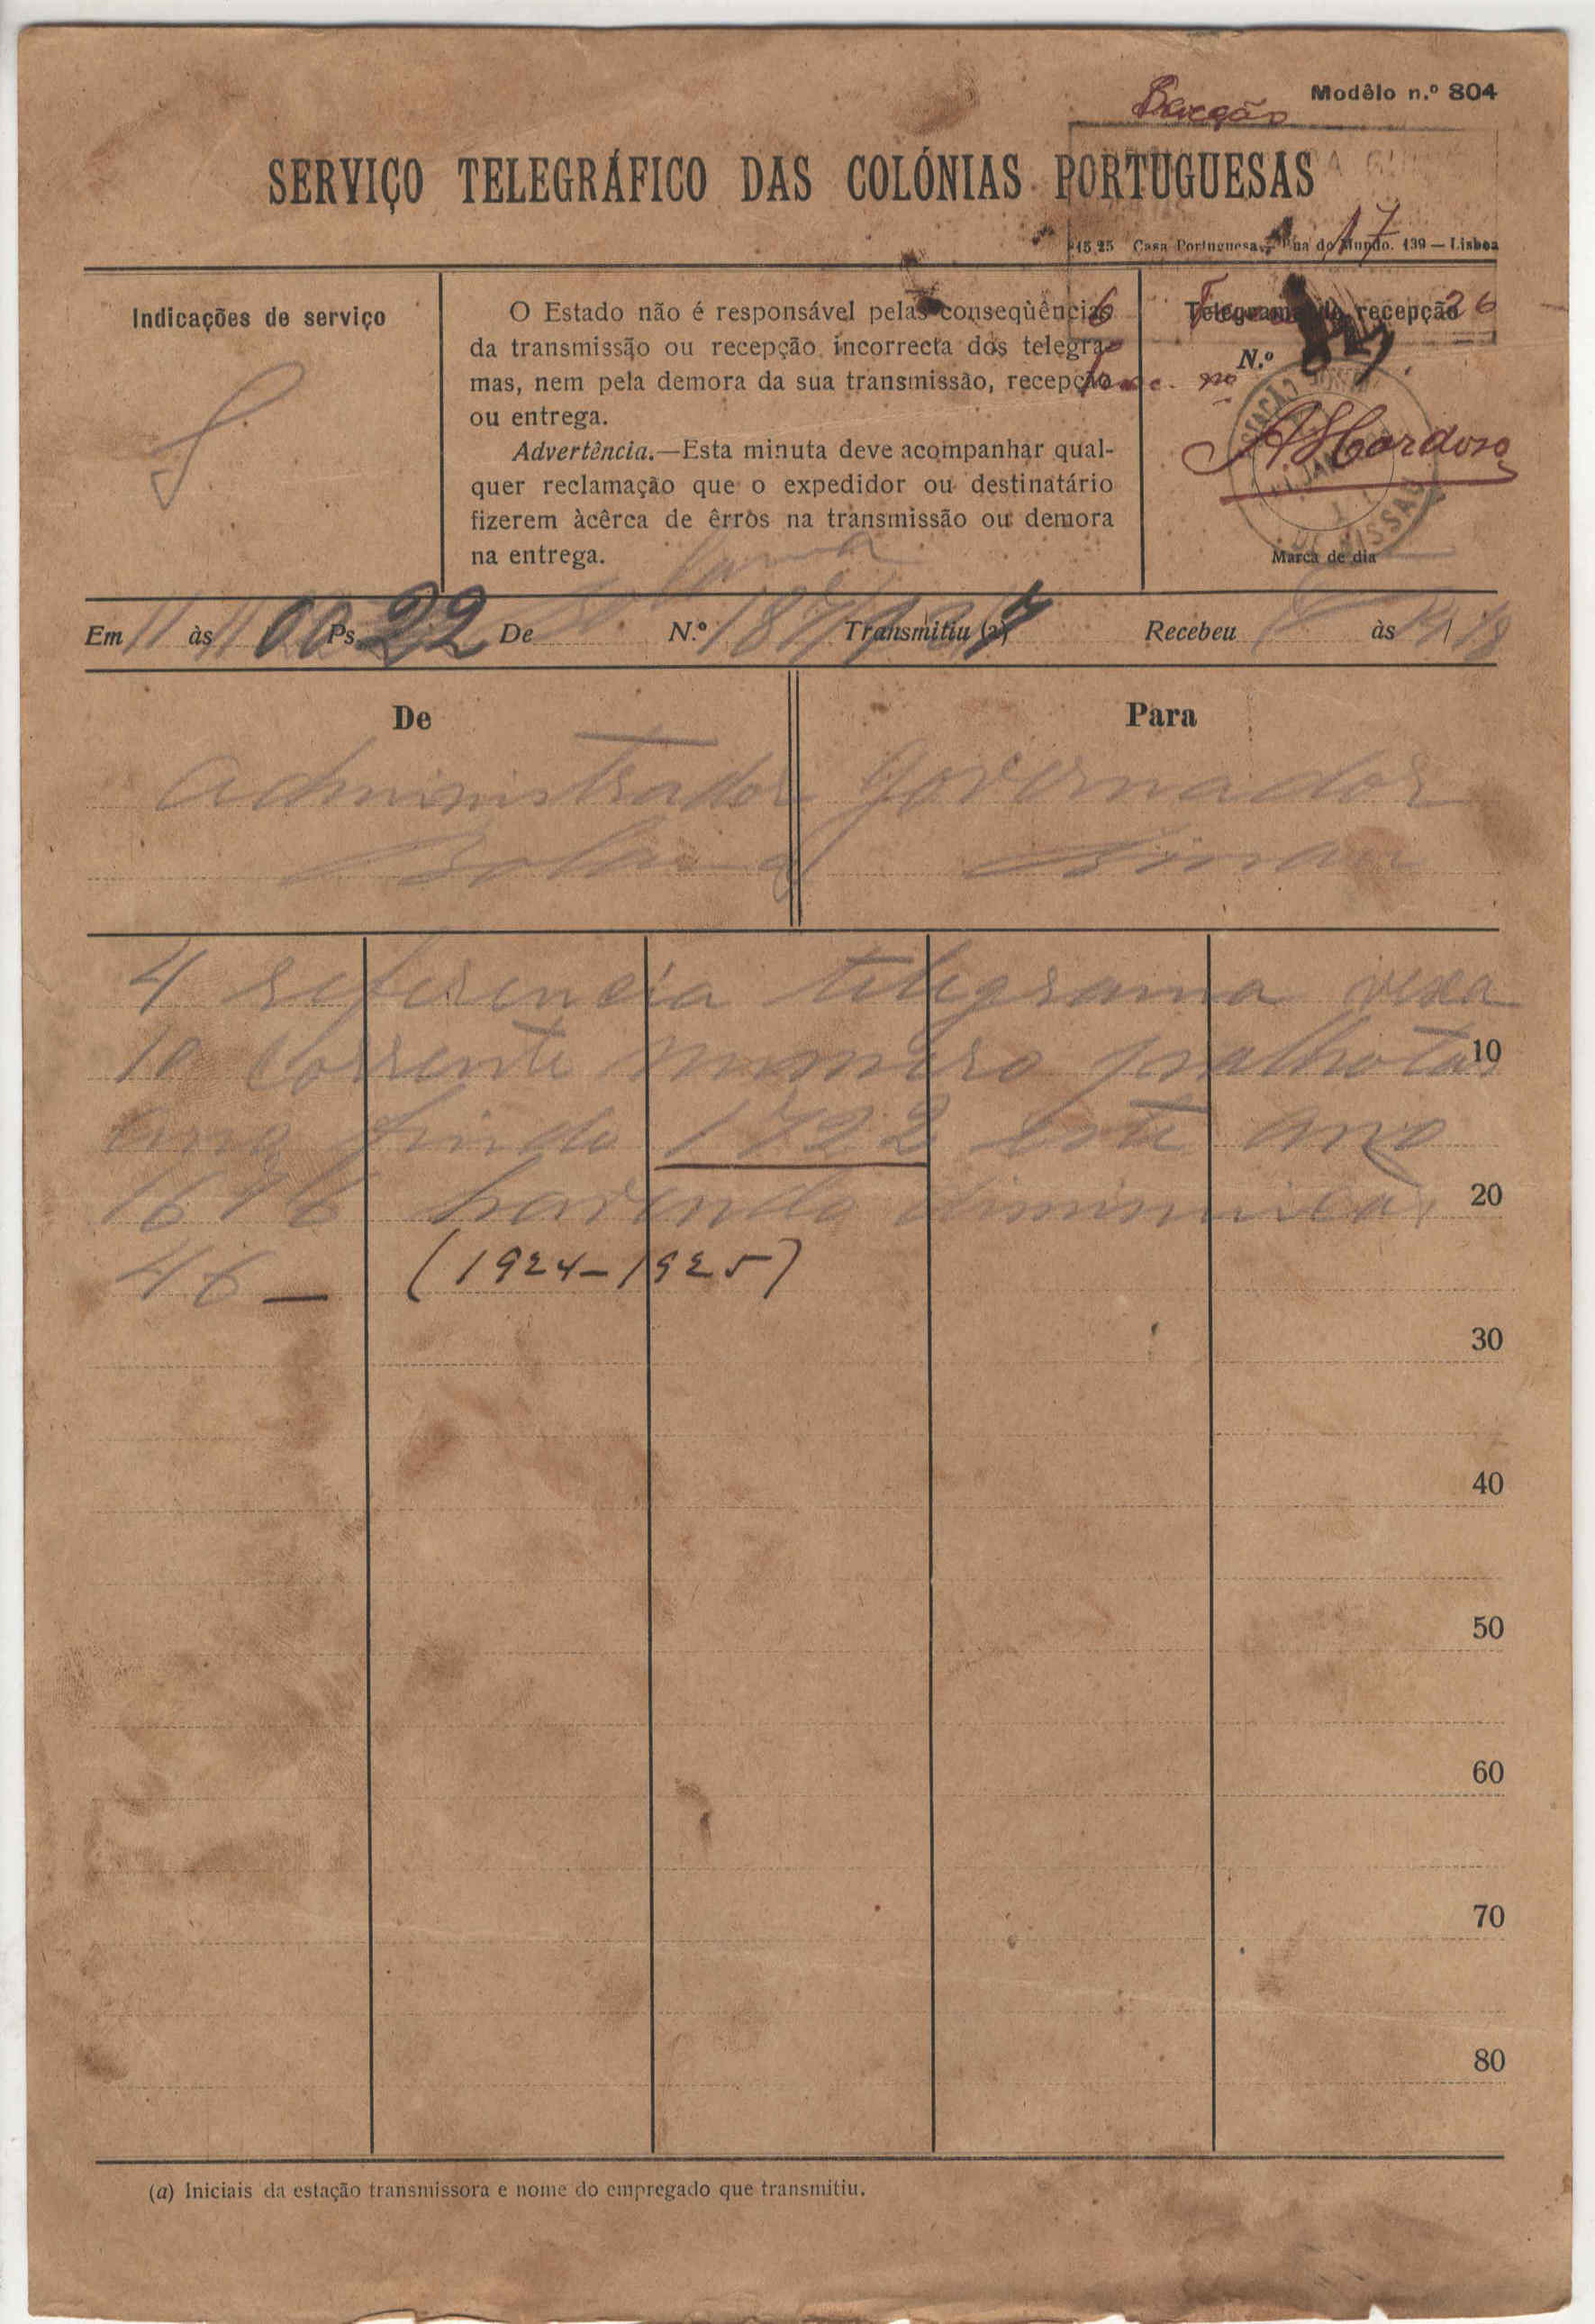 Secção
Modêlo n.º 804
SERVIÇO TELEGRÁFICO DAS COLÓNIAS PORTUGUESAS
Casa Portuguesa, Rua do Mundo. 139 — Lisboa
17
Indicações de serviço
O Estado não é responsável pelas conseqüências
da transmissão ou recepção incorrecta dos telegra-
mas, nem pela demora da sua transmissão, recepção
ou entrega.
Advertência.—Esta minuta deve acompanhar qual-
quer reclamação que o expedidor ou destinatário
fizerem àcêrca de êrros na transmissão ou demora
na entrega.
6 26
Telegrama de recepção
N.º
A. Cardoso
Marca de dia
Em 11 às 11 00 Ps. 22 De Bolama N.º Transmitiu (a) Recebeu às
De
Para
Administrador
Governador
Bolama
Bissau
4 referencia telegrama vexa
10 corrente numero palhotas
ano findo 1722 este ano
1676 havendo diminuição
46 — (1924-1925)
10
20
30
40
50
60
70
80
(a) Iniciais da estação transmissora e nome do empregado que transmitiu.